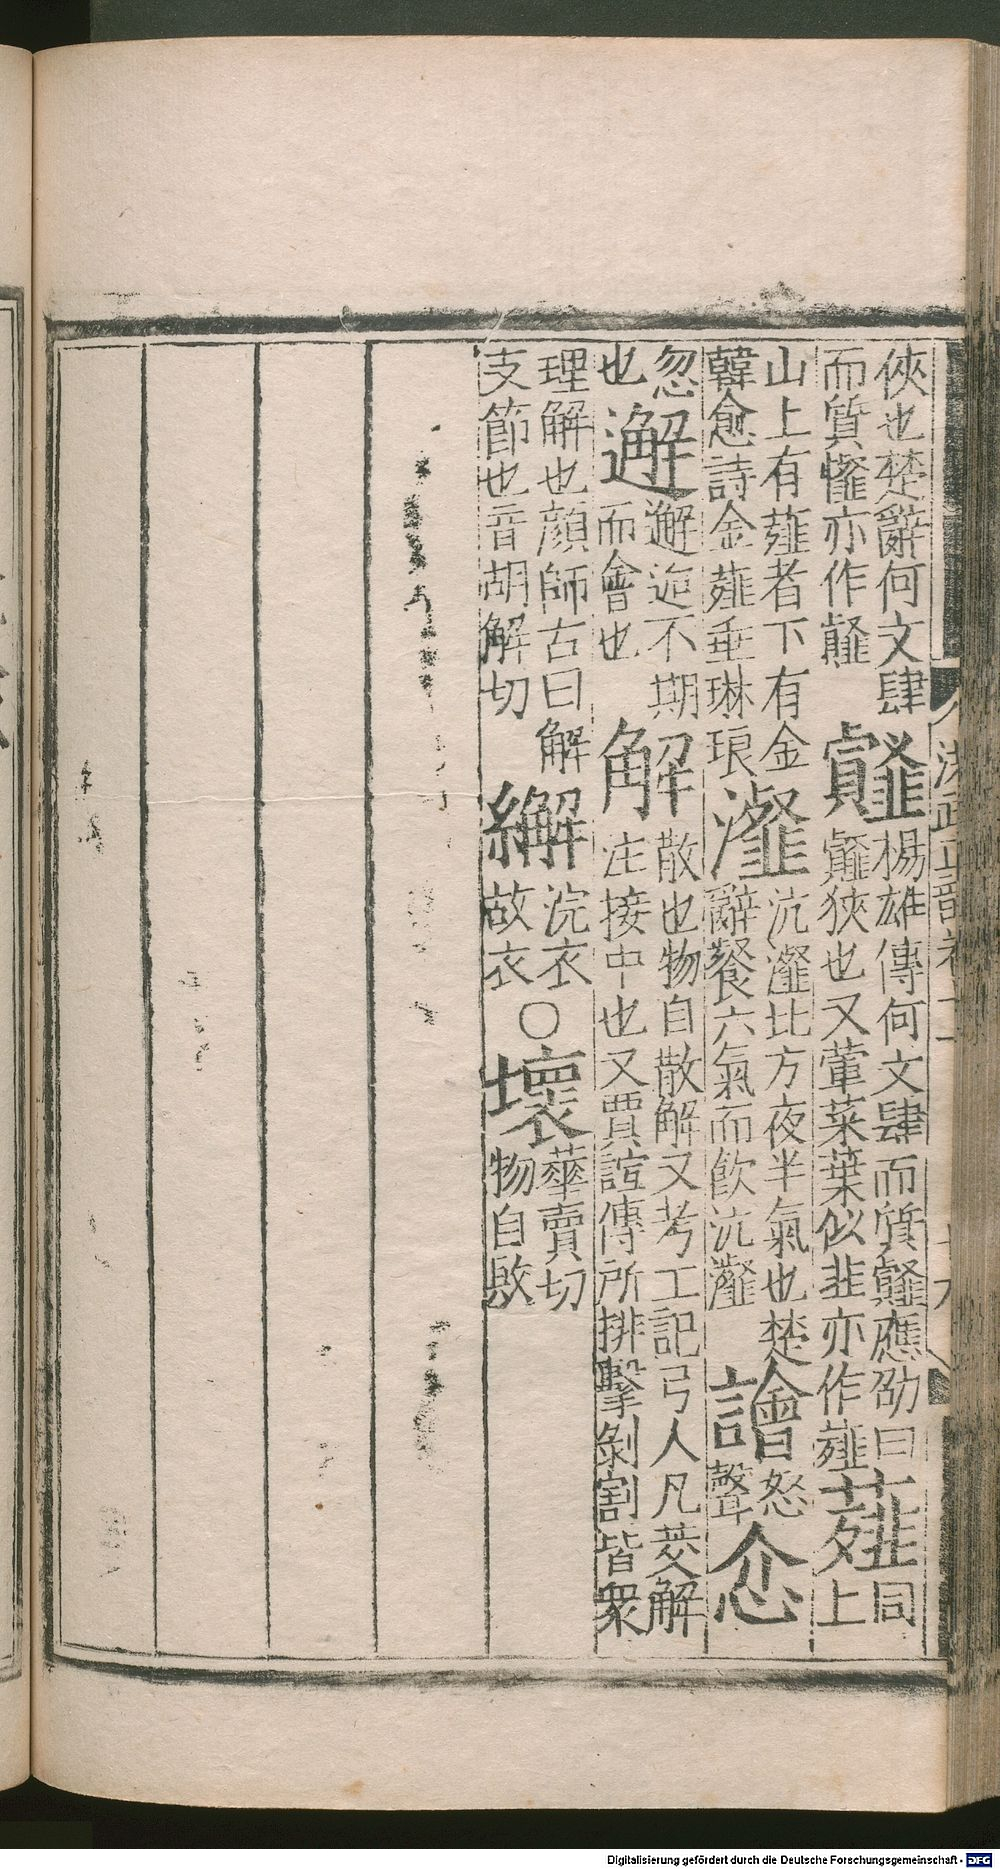 俠也楚辭何文肆
而質㦌亦作䪥
楊雄傳何文肆而質䪥應劭曰
䪥狹也又葷菜葉似韭亦作薤
薤
同
上
山上有薤者下有金
韓愈詩金薤垂琳琅
瀣
沆瀣比方夜半氣也楚
辭餐六氣而飮沆瀣
譮
怒
聲
忥
忽
也
邂
邂逅不期
而會也
解
散也物自散解又考工記弓人凡茭解
注接中也又賈誼傳所排擊剝割皆衆
理解也顔師古曰解
支節也音胡解切
繲
浣衣
故衣
○
壞
華賣切
物自敗
洪武正韻卷十一
Digitalisierung gefördert durch die Deutsche Forschungsgemeinschaft - DFG